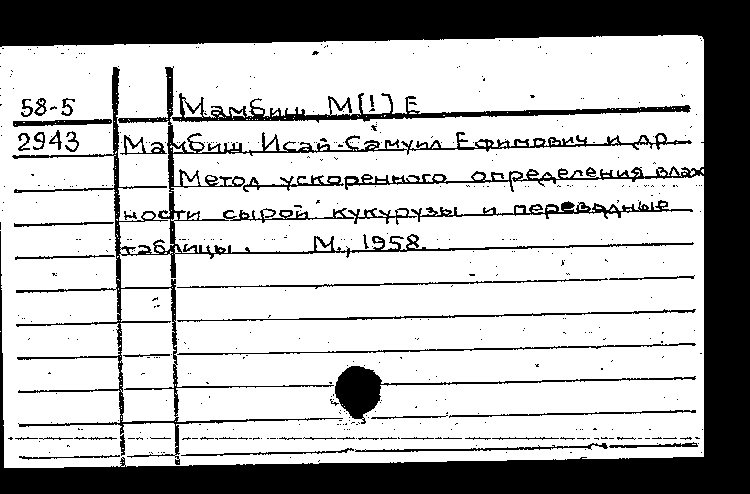 58-5 Мамбиш, М[!] Е
2943 Мамбиш, Исай-Самуил Ефимович и др.
Метод ускоренного определения влаж
ности сырой кукурузы и переводные
таблицы. М., 1958.